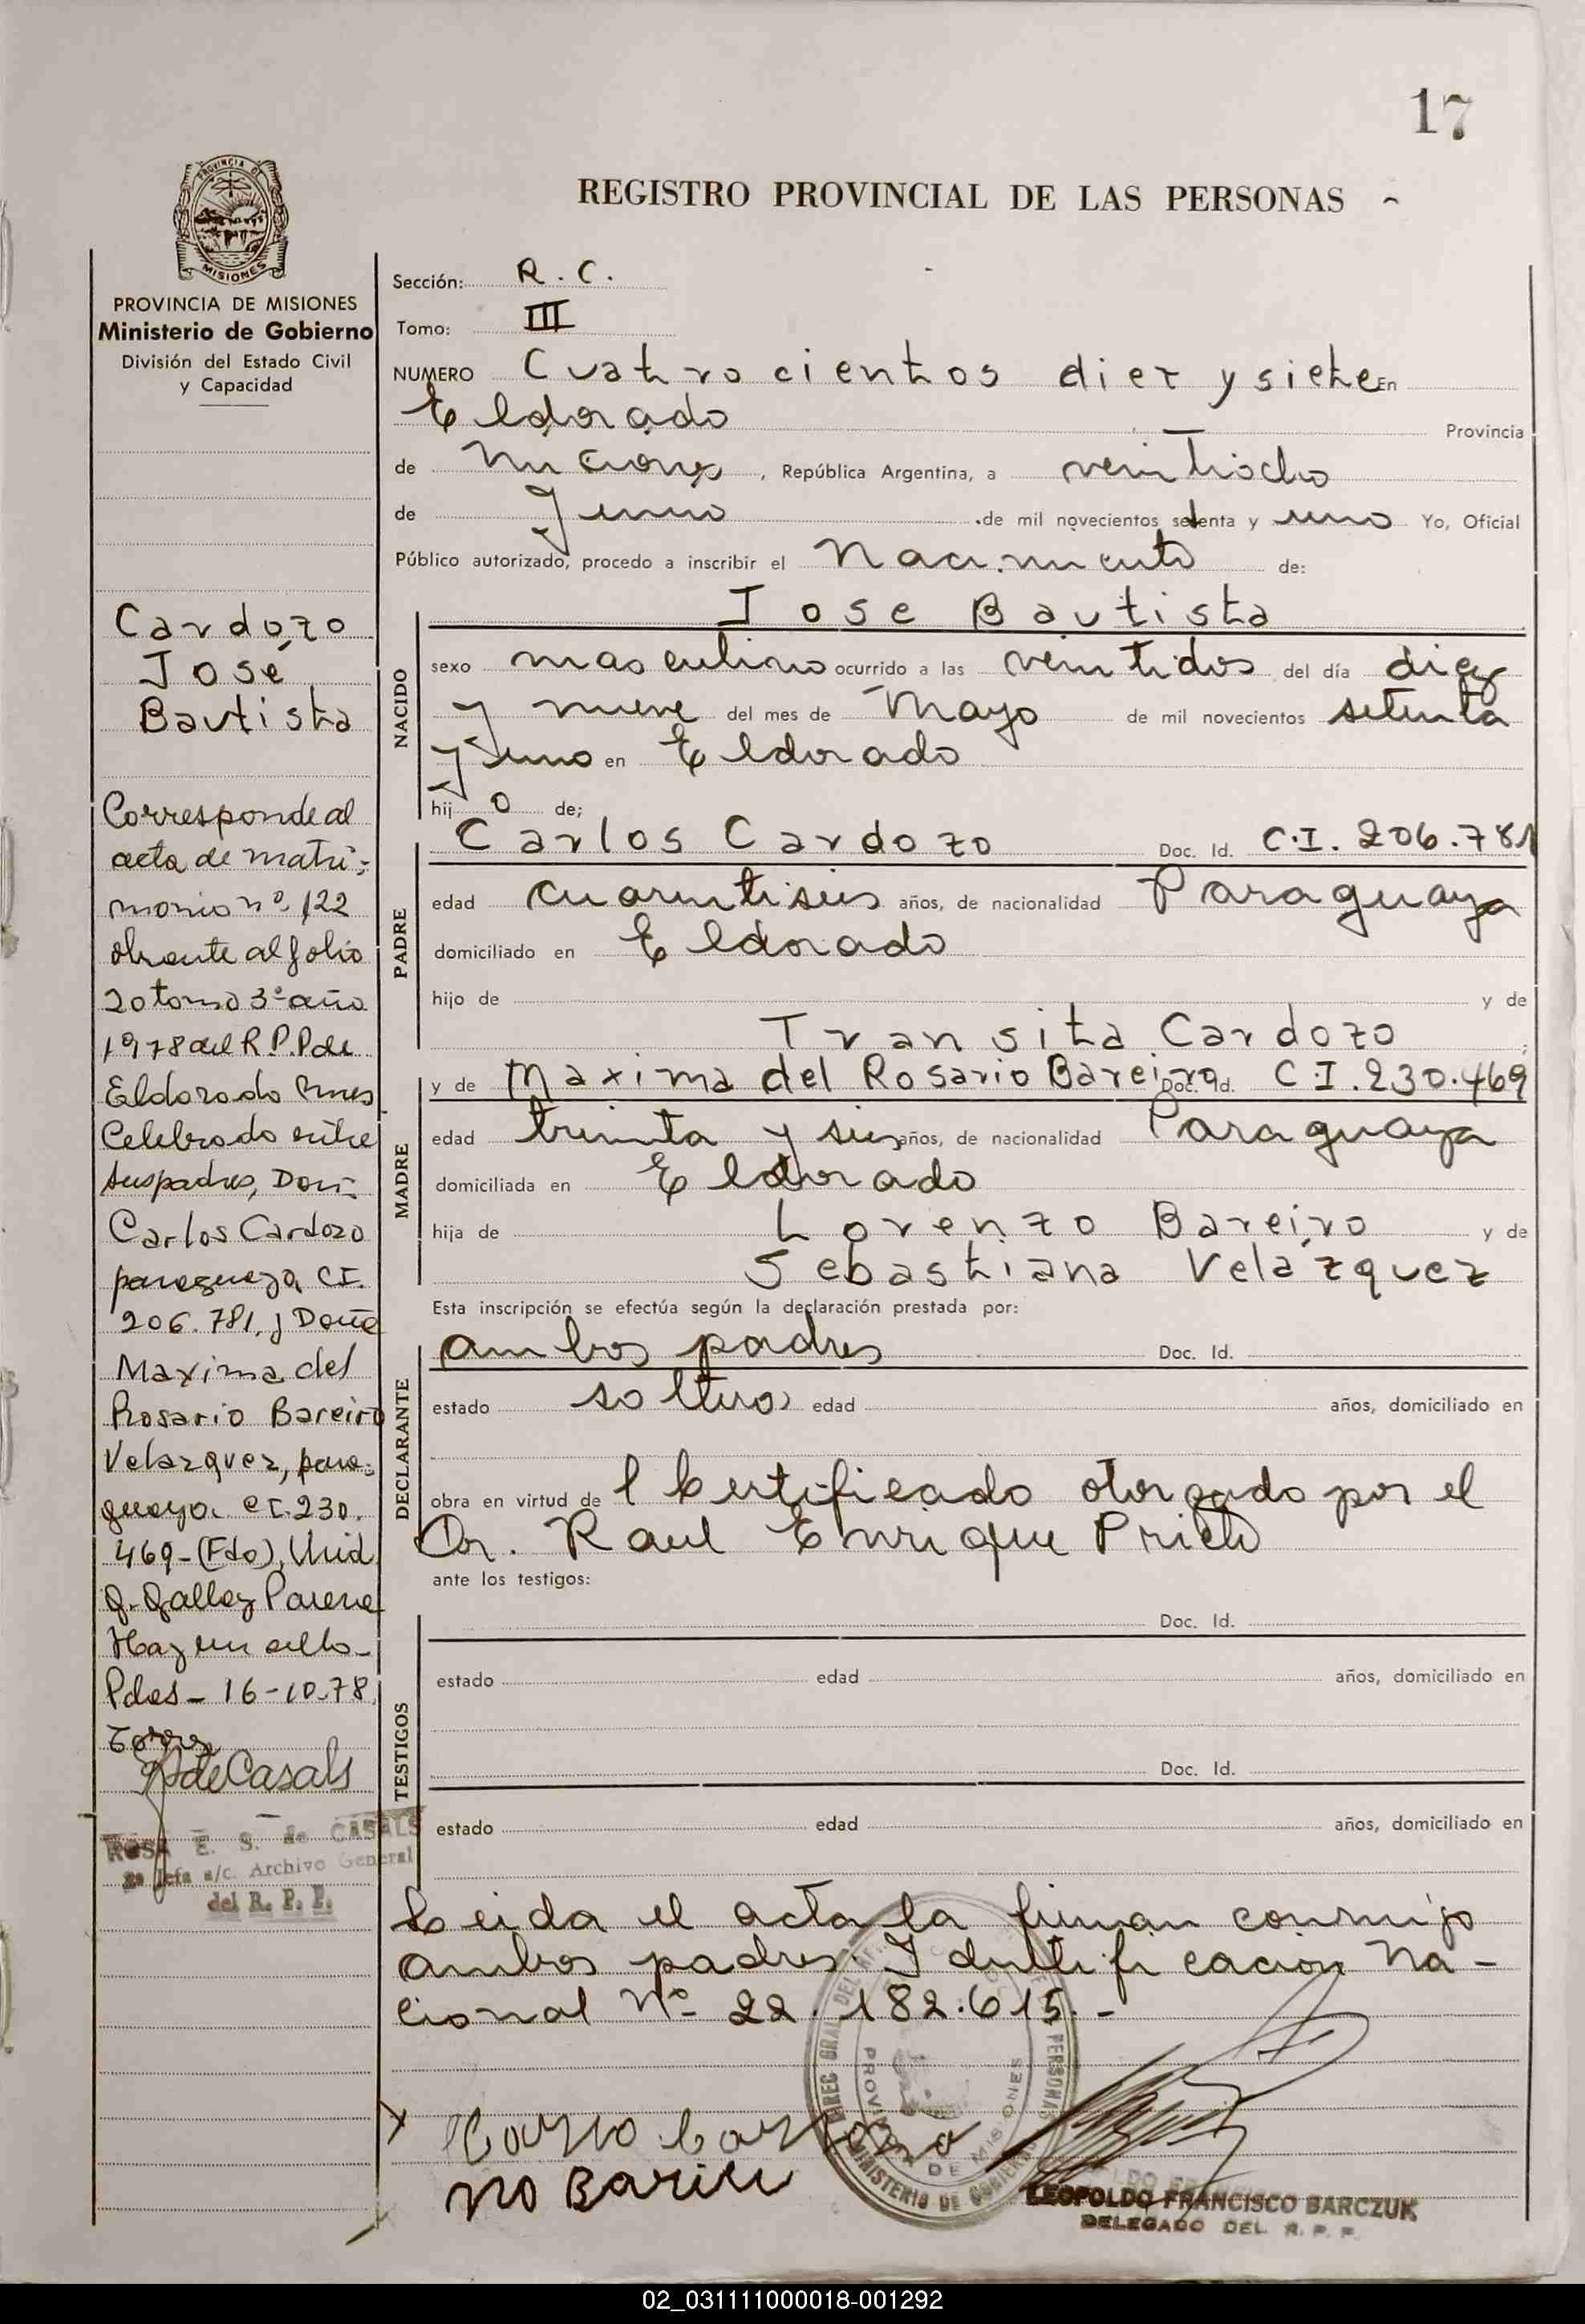 17
REGISTRO PROVINCIAL DE LAS PERSONAS
PROVINCIA DE
MISIONES
PROVINCIA DE MISIONES
Ministerio de Gobierno
División del Estado Civil
y Capacidad
Cardozo
José
Bautista
Corresponde al
acta de matri-
monio nº 122
obrante al folio
20 tomo 3º año
1978 del R.P.P de
Eldorado Mnes
Celebrado entre
sus padres, Don
Carlos Cardozo
paraguayo, CI.
206.781, y Doña
Maxima del
Rosario Bareiro
Velazquez, para-
guaya. CI. 230.
469-(Fdo),
Hay un sello-
Pdas- 16-10-78
de Casals
ROSA E. S. de CASALS
Jefa a/c. Archivo General
del R. P. P.
Sección: R. C.
Tomo: III
NUMERO Cuatrocientos diez y siete En
Eldorado Provincia
de Misiones, República Argentina, a veintiocho
de Junio de mil novecientos setenta y uno Yo, Oficial
Público autorizado, procedo a inscribir el Nacimiento de:
NACIDO
Jose Bautista
sexo masculino ocurrido a las veintidos del día diez
y nueve del mes de Mayo de mil novecientos setenta
y uno en Eldorado
hij o de;
PADRE
Carlos Cardozo Doc. Id. C.I. 206.781
edad cuarentiseis años, de nacionalidad Paraguaya
domiciliado en Eldorado
hijo de y de
Transita Cardozo
MADRE
y de Maxima del Rosario Bareiro Doc. Id. C.I. 230.469
edad treinta y seis años, de nacionalidad Paraguaya
domiciliada en Eldorado
hija de Lorenzo Bareiro y de
Sebastiana Velázquez
Esta inscripción se efectúa según la declaración prestada por:
DECLARANTE
ambos padres Doc. Id.
estado solteros edad años, domiciliado en
obra en virtud de l Certificado otorgado por el
Dr. Raul Enrique Prieto
ante los testigos:
TESTIGOS
Doc. Id.
estado edad años, domiciliado en
Doc. Id.
estado edad años, domiciliado en
Leida el acta la firman conmigo
ambos padres. Identificación Na-
cional Nº 22.182.615.-
DIREC GRAL DEL PERSONAS
PROVINCIA DE MISIONES
MINISTERIO DE GOBIERNO
LEOPOLDO FRANCISCO BARCZUK
DELEGADO DEL R. P. P.
02_031111000018-001292